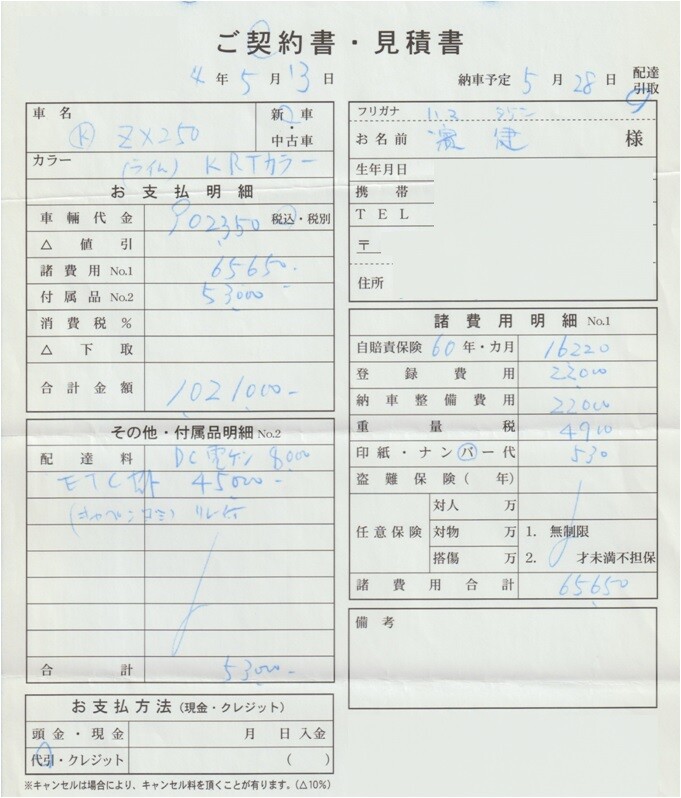 ご契約書・見積書
4年5月13日
納車予定 5月28日 配達 引取
車名 Ⓚ ZX250 新車・中古車
カラー (ライム) KRTカラー
お支払明細
車輛代金 902350 税込・税別
△値引
諸費用No.1 65650-
付属品No.2 53000-
消費税%
△下取
合計金額 1021000-
フリガナ
お名前 健 様
生年月日
携帯
TEL
〒
住所
その他・付属品明細No.2
配達料 DC電ゲン 8000
ETC 45000-
合計 53000-
諸費用明細 No.1
自賠責保険 60年・カ月 16220
登録費用 22000
納車整備費用 22000
重量税 4900
印紙・ナンバー代 530
盗難保険(年)
任意保険
対人 万
対物 万 1. 無制限
搭傷 万 2. 才未満不担保
諸費用合計 65650
備考
お支払方法(現金・クレジット)
頭金・現金 月 日入金
代引・クレジット ( )
※キャンセルは場合により、キャンセル料を頂くことが有ります。(△10%)